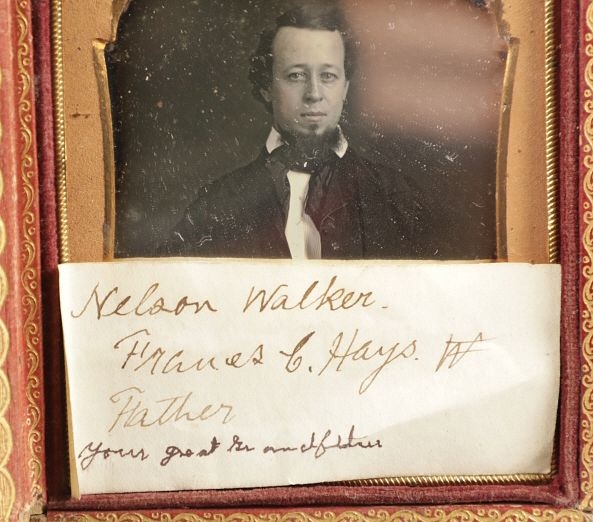 Nelson Walker.
Frances C. Hays. W
Father
Your great Grandfather